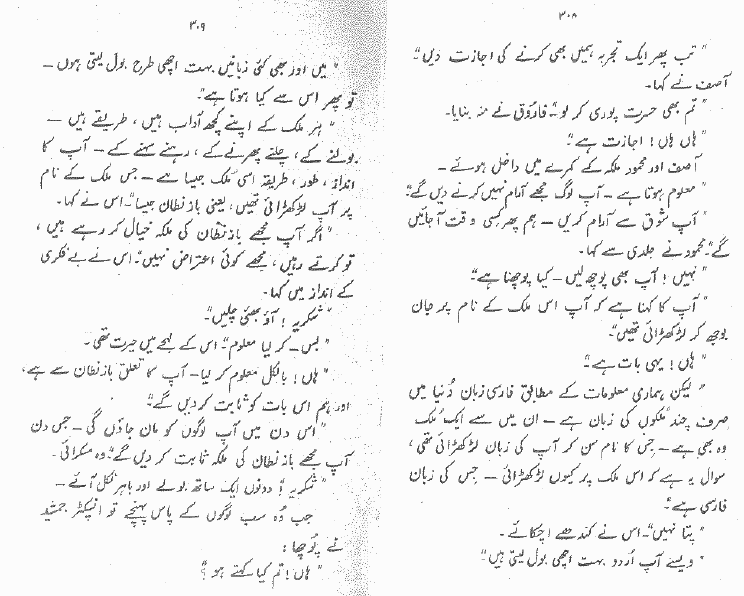 ۳۰۸
"تب پھر ایک تجربہ ہمیں بھی کرنے کی اجازت دیں"۔
آصف نے کہا۔
"تم بھی حسرت پوری کر لو"۔ فاروق نے منہ بنایا۔
"ہاں ہاں! اجازت ہے"۔
آصف اور محمود ملکہ کے کمرے میں داخل ہوئے۔
"معلوم ہوتا ہے — آپ لوگ مجھے آرام نہیں کرنے دیں گے"۔
"آپ شوق سے آرام کریں — ہم پھر کسی وقت آ جائیں
گے"۔ محمود نے جلدی سے کہا۔
"نہیں! آپ بھی پوچھ لیں — کیا پوچھنا ہے"۔
"آپ کا کہنا ہے کہ آپ اس ملک کے نام پر جان
بوجھ کر لڑکھڑائی تھیں"۔
"ہاں! یہی بات ہے"۔
"لیکن ہماری معلومات کے مطابق فارسی زبان دُنیا میں
صرف چند مُلکوں کی زبان ہے — ان میں سے ایک مُلک
وہ بھی ہے — جس کا نام سن کر آپ کی زبان لڑکھڑائی تھی،
سوال یہ ہے کہ اس ملک پر کیوں لڑکھڑائی — جس کی زبان
فارسی ہے"۔
"پتا نہیں"۔ اس نے کندھے اچکائے۔
"ویسے آپ اُردو بہت اچھی بول لیتی ہیں"۔
۳۰۹
"میں اور بھی کئی زبانیں بہت اچھی طرح بول لیتی ہوں —
تو پھر اس سے کیا ہوتا ہے"۔
"ہر ملک کے اپنے کچھ آداب ہیں، طریقے ہیں —
بولنے کے، چلنے پھرنے کے، رہنے سہنے کے — آپ کا
انداز، طور، طریقہ اسی مُلک جیسا ہے — جس ملک کے نام
پر آپ لڑکھڑائی تھیں، یعنی بازنطان جیسا"۔ اس نے کہا۔
"اگر آپ مجھے بازنطان کی ملکہ خیال کر رہے ہیں،
تو کرتے رہیں، مجھے کوئی اعتراض نہیں"۔ اس نے بے فکری
کے انداز میں کہا۔
"شکریہ! آؤ بھئی چلیں"۔
"بس — کر لیا معلوم"۔ اس کے لہجے میں حیرت تھی۔
"ہاں! بالکل معلوم کر لیا — آپ کا تعلق بازنطان سے ہے،
اور ہم اس بات کو ثابت کر دیں گے"۔
"اس دن میں آپ لوگوں کو مان جاؤں گی — جس دن
آپ مجھے بازنطان کی ملکہ ثابت کر دیں گے"۔ وہ مسکرائی۔
"شکریہ"! دونوں ایک ساتھ بولے اور باہر نکل آئے —
جب وُہ سب لوگوں کے پاس پہنچے تو انسپکٹر جمشید
نے پُوچھا:
"ہاں! تم کیا کہتے ہو؟"